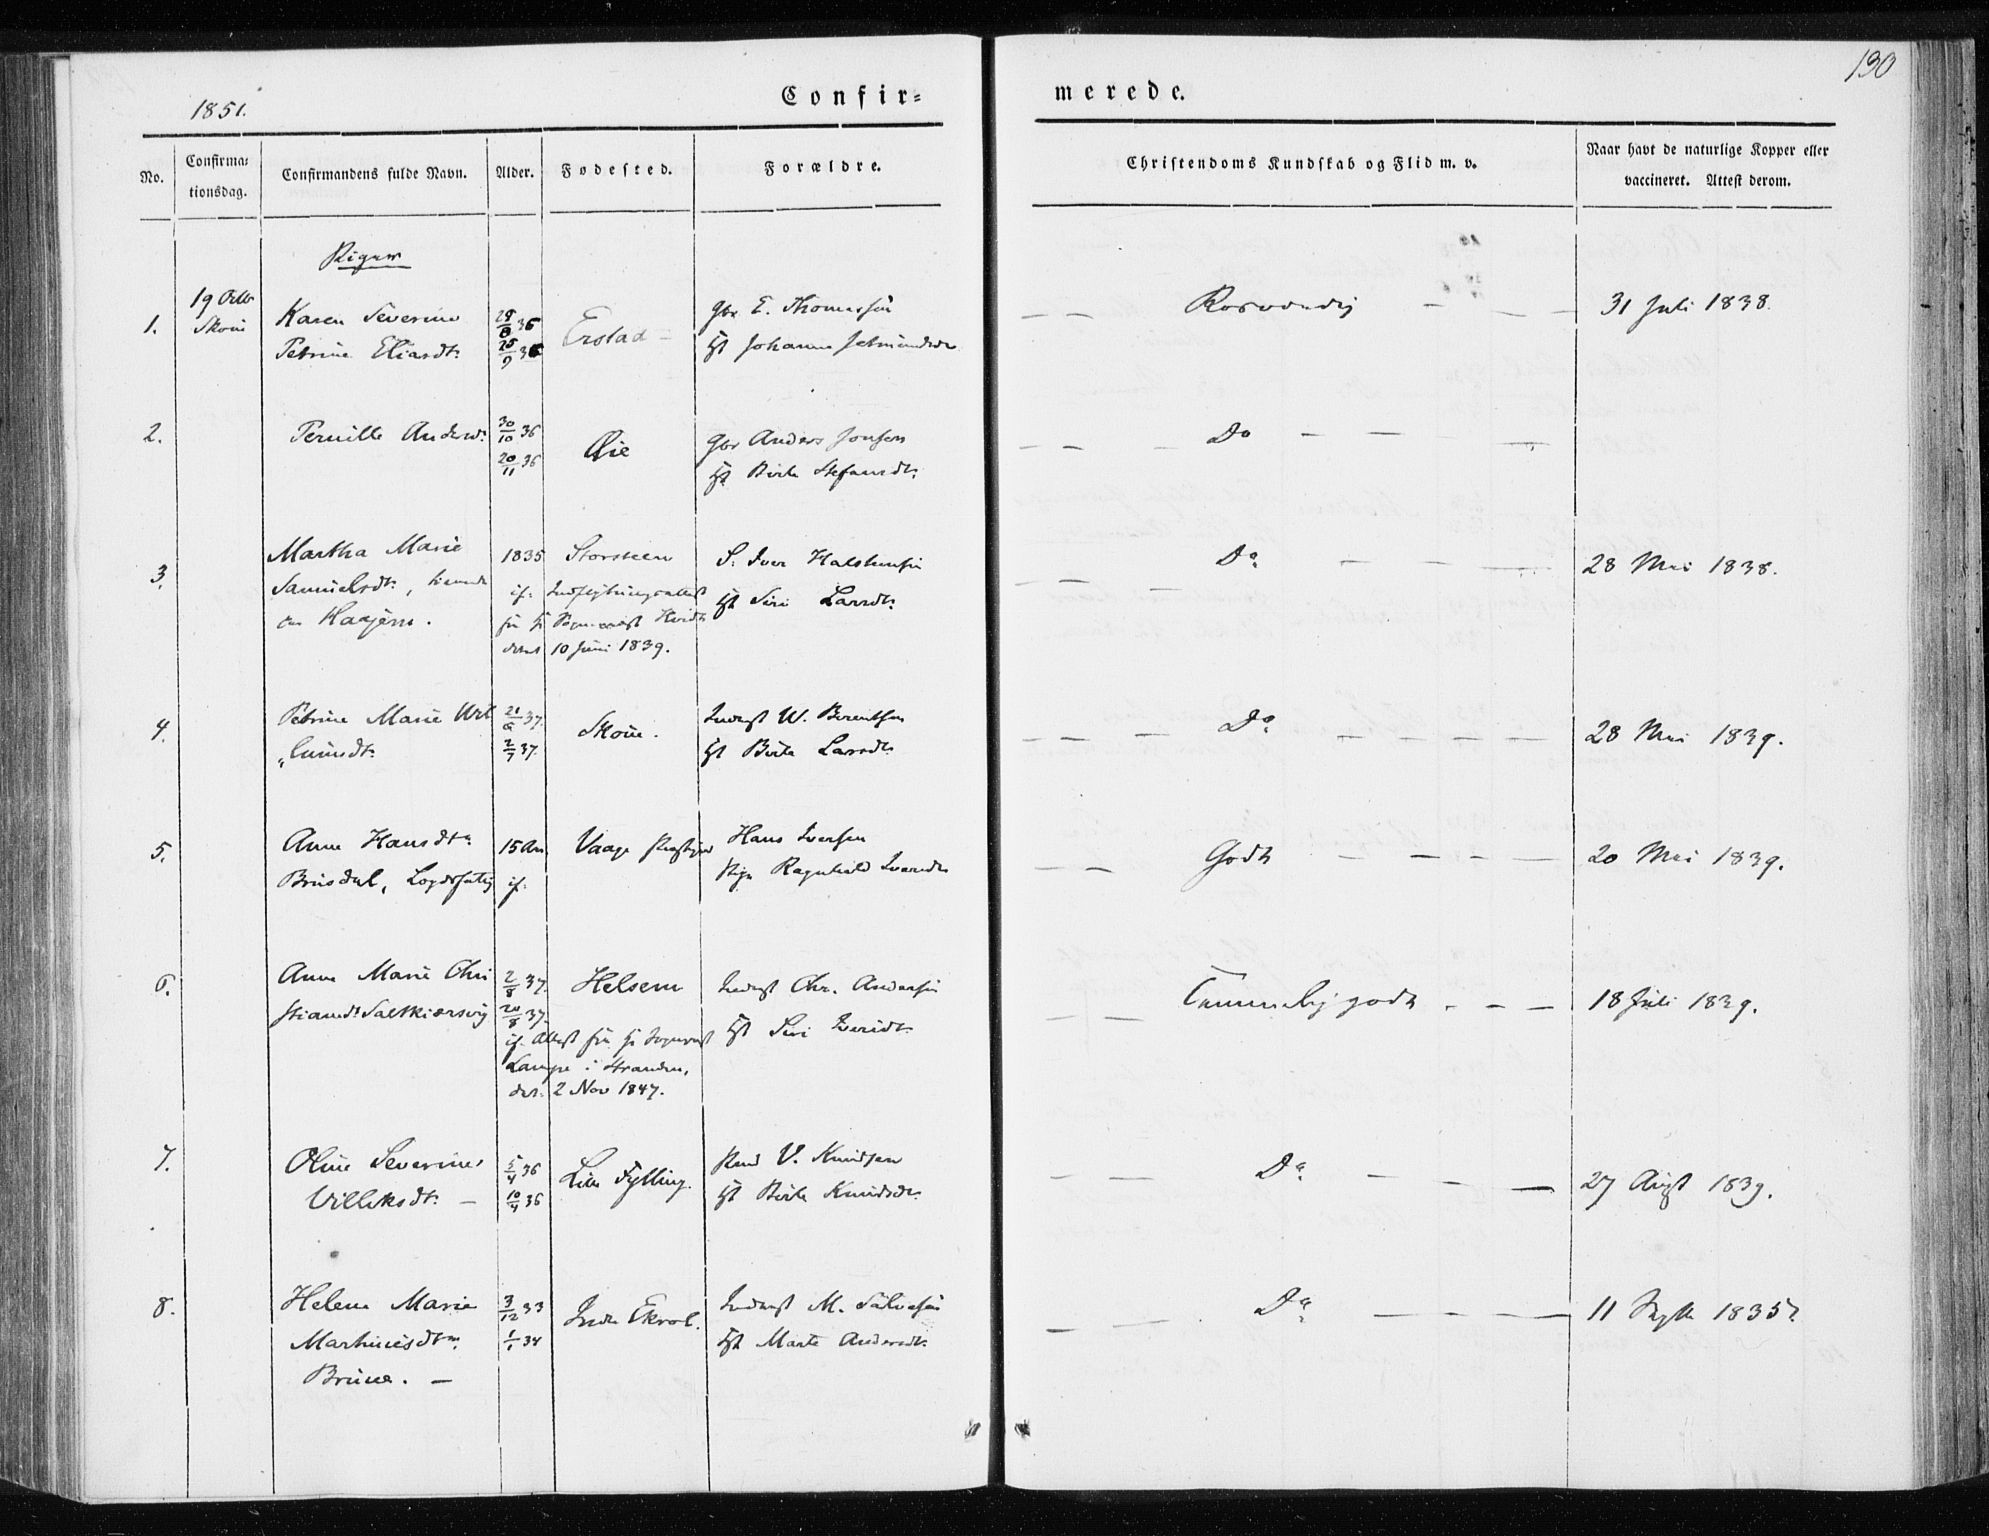 130
1851.
Confir=
merede.
No.
Confirma=
tionsdag.
Confirmandens fulde Navn.
Alder.
Fødested.
Forældre.
Christendoms Kundskab og Flid m. v.
Naar havt de naturlige Kopper eller
vaccineret. Attest derom.
Piger
1.
19 Octb
Skoue
Karen Severine
Petrine Eliasdtr
28/8 36
25/9 36
Erstad -
Gbr E. Thomassen
Ht Johanne
Rosværdig
31 Juli 1838.
2.
Pernille Andersd.
30/10 36
20/11 36
Øie
Gbr Anders Jonsen
Ht Berte Stefansdtr
Do
3.
Martha Marie
Samuelsdtr, tienende
Haajem.
1835
if. Indflytningsattest
fra H
dateret 10 Juni 1839.
Storsteen
S. Iver
Ht Siri Larsdtr
Do
28 Mai 1838.
4.
Petrine Marie Wil
"lumsdtr
21/6 37.
2/7 37.
Skoue.
Inderst W. Berentsen
Ht Berte Larsdtr
Do
28 Mai 1839.
5.
Anne Hansdtr
Brusdal, Logdsfattig
15 Aar
if.
Vaage Prestgield
Hans Iversen
Pige Ragnhild Iversdtr
Godt
20 Mai 1839.
6.
Anne Marie Chri
stiansdt Saltkiærsvig
2/8 37.
20/8 37.
if. Attest fra Hr Sognepræst
Lampe i Stranden,
dat. 2 Nov 1847.
Helsem
Inderst Chr. Andersen
Ht Siri Iversdtr
Temmelig godt
18 Juli 1839.
7.
Oline Severine
Villiksdtr -
5/4 36
10/4 36
Lille Fylling.
V. Knudsen
Ht Berte Knudsdtr
Do
27 Augst 1839.
8.
Helene Marie
Martinusdtr
Brune. -
3/12 33
1/1 34
Indre Ekrol.
Inderst M.
Ht Marte Andersdtr
Do
11 1835